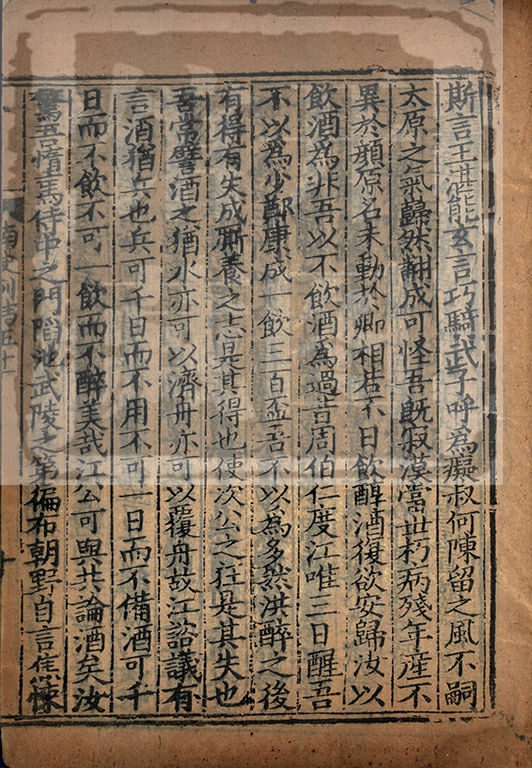 斯言王湛能玄言巧騎武子呼為癡叔何陳留之風不嗣
太原之氣歸然翻成可怪吾既寂漠當世朽病殘年産不
異於顔原名未動於卿相若不日飲醇酒復欲安歸汝以
飲酒為非吾以不飲酒為過昔周伯仁度江唯三日醒吾
不以為少鄭康成一飲三百盃吾不以為多然洪醉之後
有得有失成厮養之志是其得也使次公之狂是其失也
吾常譬酒之猶水亦可以濟舟亦可以覆舟故江諮議有
言酒猶兵也兵可千日而不用不可一日而不備酒可千
日而不飲不可一飲而不醉美哉江公可與共論酒矣汝
驚吾惰馬侍中之門陷池武陵之第徧布朝野自言焦悚
南史列傳五十一